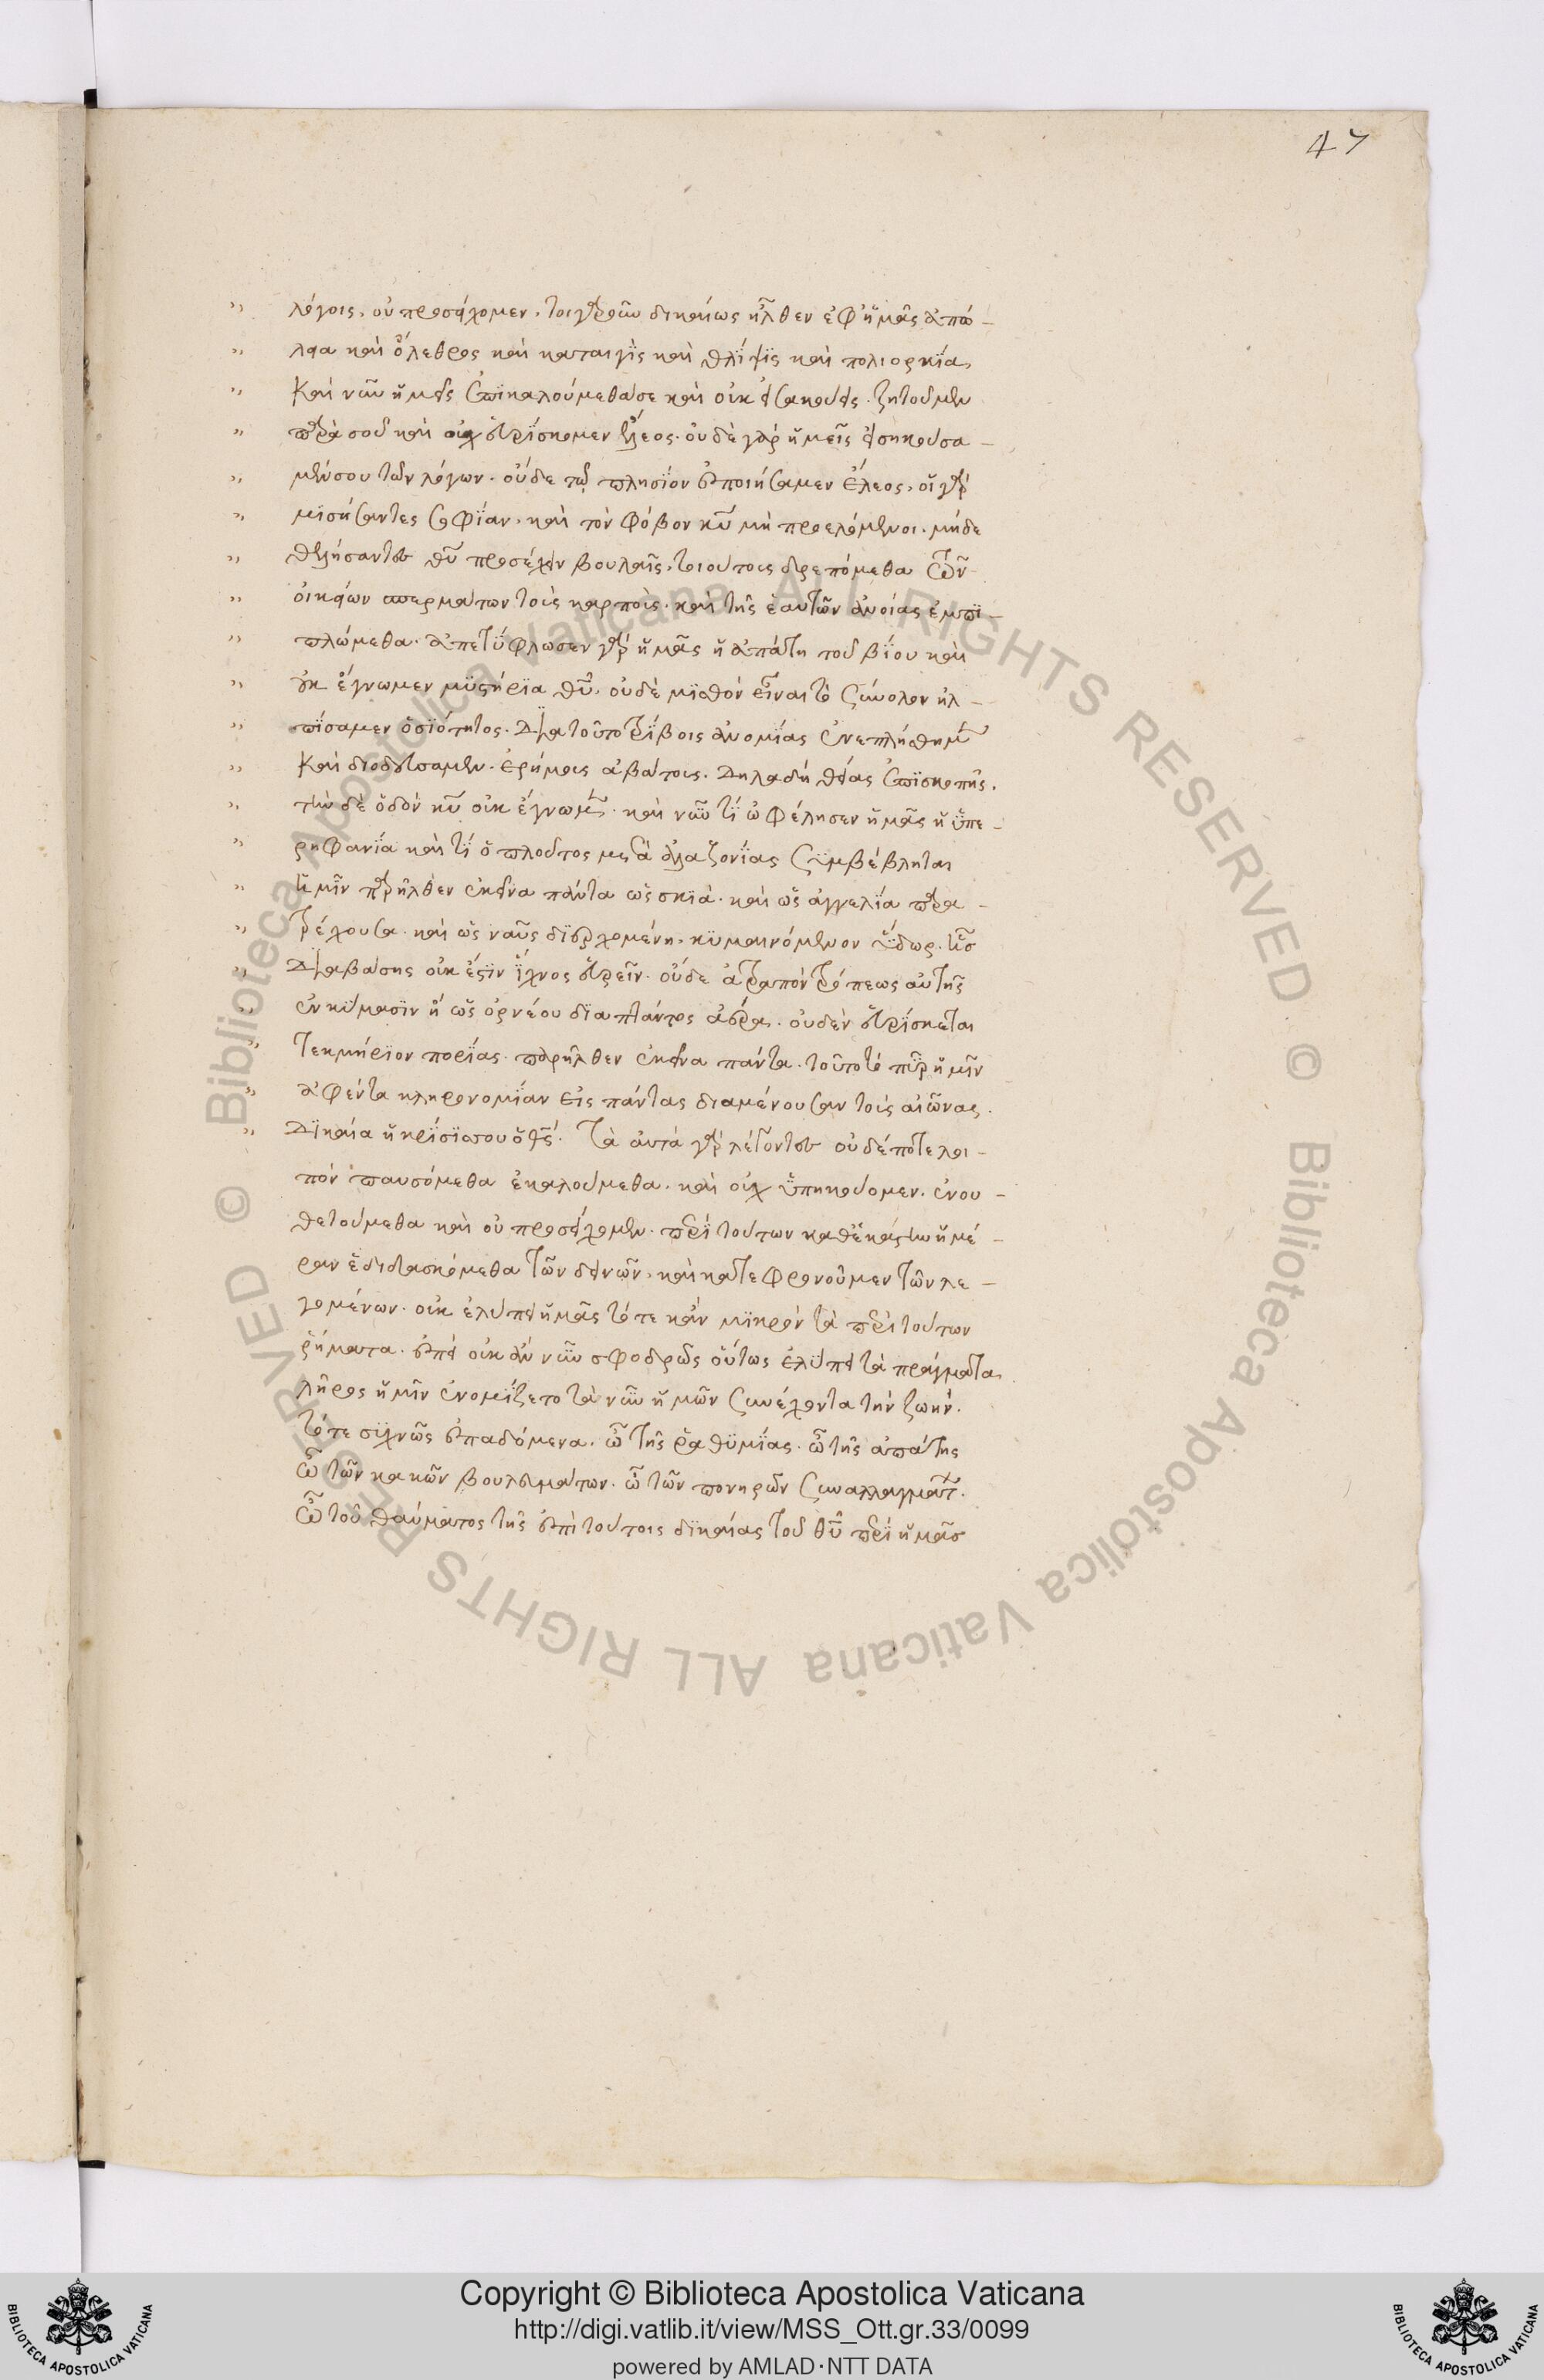 47
λόγοις, οὐ προσείχομεν, τοιγαροῦν δικαίως ἦλθεν ἐφ' ἡμᾶς ἀπώ-
λεια καὶ ὄλεθρος καὶ καταιγὶς καὶ θλίψις καὶ πολιορκία,
καὶ νῦν ἡμεῖς ἐπικαλούμεθά σε καὶ οὐκ εἰσακούεις. ζητοῦμεν
παρὰ σοῦ καὶ οὐχ εὑρίσκομεν ἔλεος. οὐδὲ γὰρ ἡμεῖς εἰσηκούσα-
μέν σου τῶν λόγων. οὐδὲ τῷ πλησίον ἐποιήσαμεν ἔλεος, οἱ γὰρ
μισήσαντες σοφίαν, καὶ τὸν φόβον κυ μὴ προελόμενοι. μήδε
θελήσαντες θυ προσέχειν βουλαῖς, τοιούτοις δρεπόμεθα τῶν
οἰκείων σπερμάτων τοὺς καρποὺς. καὶ τῆς ἑαυτῶν ἀνοίας ἐμπι-
πλώμεθα. ἀπετύφλωσεν γὰρ ἡμᾶς ἡ ἀπάτη τοῦ βίου καὶ
οὐκ ἔγνωμεν μυστήρια θυ, οὐδὲ μισθὸν εἶναι τὸ σύνολον ἠλ-
πίσαμεν ὁσιότητος. Διὰ τοῦτο τρίβοις ἀνομίας ἐνεπλήσθημεν
καὶ διοδεύσαμεν. ἐρήμοις ἀβάτοις. Δηλαδὴ θείας ἐπισκοπῆς.
τὴν δὲ ὁδὸν κυ οὐκ ἔγνωμεν. καὶ νῦν τί ὠφέλησεν ἡμᾶς ἡ ὑπε-
ρηφανία καὶ τί ὁ πλοῦτος μετὰ ἀλαζονίας συμβέβληται
ἡμῖν παρῆλθεν ἐκεῖνα πάντα ὡς σκιά. καὶ ὡς ἀγγελία παρα-
τρέχουσα. καὶ ὡς ναῦς διερχομένη, κυμαινόμενον ὕδωρ. ἧς
Διαβάσης οὐκ ἔστιν ἴχνος εὑρεῖν. οὐδὲ ἀτραπὸν τρόπεως αὐτῆς
ἐν κύμασιν ἢ ὡς ὀρνέου διαπτάντος ἀέρα. οὐδὲν εὑρίσκεται
τεκμήριον πορίας. παρῆλθεν ἐκεῖνα πάντα. τοῦτο τὸ πῦρ ἡμῖν
ἀφέντα κληρονομίαν εἰς πάντας διαμένουσαν τοὺς αἰῶνας.
Δικαία ἡ κρίσις σου ὁ θς. Τὰ αὐτὰ γὰρ λέγοντες οὐδέποτε λοι-
πὸν παυσόμεθα ἐκαλούμεθα. καὶ οὐχ ὑπηκούομεν. ἐνου-
θετούμεθα καὶ οὐ προσείχομεν. περὶ τούτων καθ' ἑκάστην ἡμέ-
ραν ἐδιδασκόμεθα τῶν δεινῶν, καὶ κατεφρονοῦμεν τῶν λε-
γομένων. οὐκ ἐλύπει ἡμᾶς τότε κἂν μικρὸν τὰ περὶ τούτων
ῥήματα. ἐπεὶ οὐκ ἂν νῦν σφοδρῶς οὕτως ἐλύπει τὰ πράγματα.
λῆρος ἡμῖν ἐνομίζετο τὰ νῦν ἡμῶν συνέχοντα τὴν ζωήν.
τότε συχνῶς ἐπαδόμενα. ὢ τῆς ῥαθυμίας. ὢ τῆς ἀπάτης
ὢ τῶν κακῶν βουλευμάτων. ὢ τῶν πονηρῶν συναλλαγμάτων.
ὢ τοῦ θαύματος τῆς ἐπὶ τούτοις δικαίας τοῦ θυ περὶ ἡμᾶς
© Biblioteca Apostolica Vaticana ALL RIGHTS RESERVED © Biblioteca Apostolica Vaticana ALL RIGHTS RESERVED
Copyright © Biblioteca Apostolica Vaticana
http://digi.vatlib.it/view/MSS_Ott.gr.33/0099
powered by AMLAD·NTT DATA
BIBLIOTECA APOSTOLICA VATICANA
BIBLIOTECA APOSTOLICA VATICANA